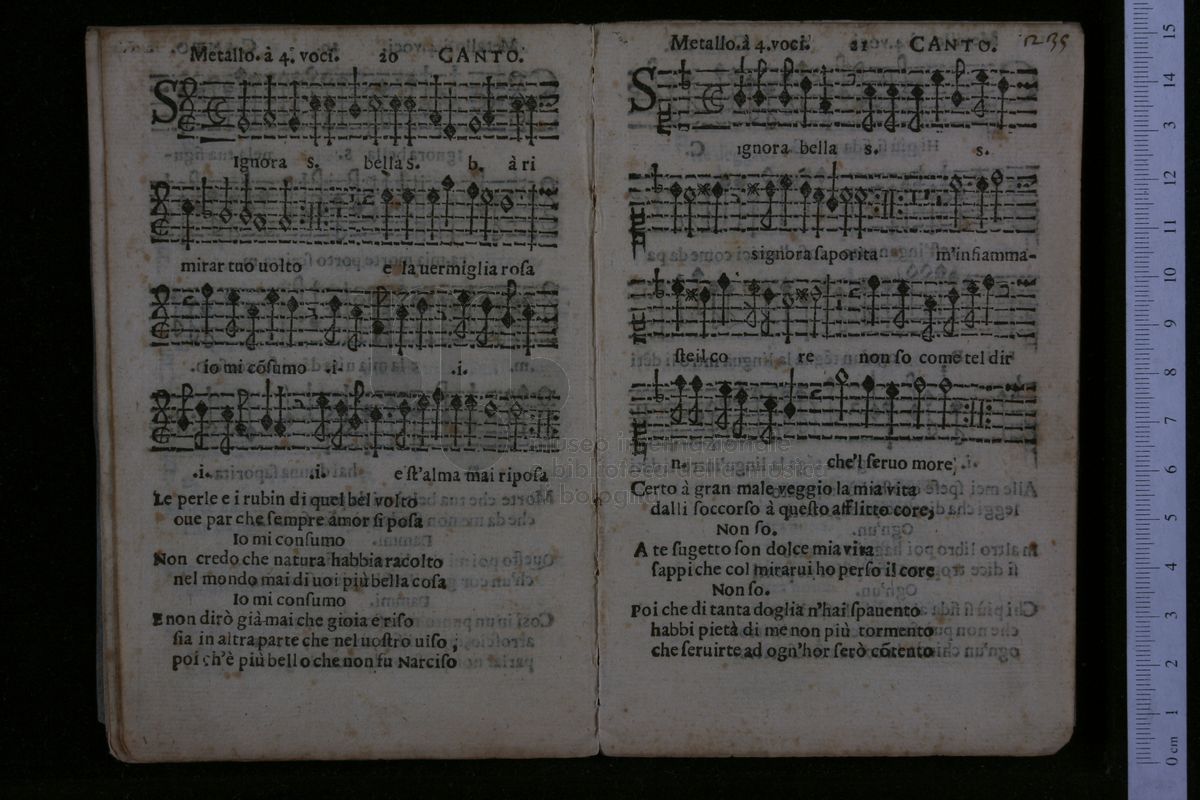 Metallo. à 4. voci. 20 CANTO.
Signora s. bella s. b. à ri
mirar tuo uolto e la uermiglia rosa
io mi cõsumo .i. .i.
.i. .i. e st'alma mai riposa
Le perle e i rubin di quel bel volto
oue par che sempre amor si posa
Io mi consumo
Non credo che natura habbia racolto
nel mondo mai di uoi più bella cosa
Io mi consumo
E non dirò già mai che gioia e riso
sia in altra parte che nel uostro uiso ;
poi ch'è più bello che non fu Narciso
Metallo. à 4. voci. 21 CANTO.
Signora bella s. s.
signora saporita m'infiamma-
ste il co re non so come tel dir
n. che'l seruo more
Certo à gran male veggio la mia vita
dalli soccorso à questo afflitto core;
Non so.
A te sugetto son dolce mia vita
sappi che col mirarui ho perso il core
Non so.
Poi che di tanta doglia n'hai spauento
habbi pietà di me non più tormento
che seruirte ad ogn'hor serò cõtento
museo internazionale
e biblioteca della musica
di bologna
15
14
3
12
10
9
8
7
6
5
4
3
2
1
0 cm